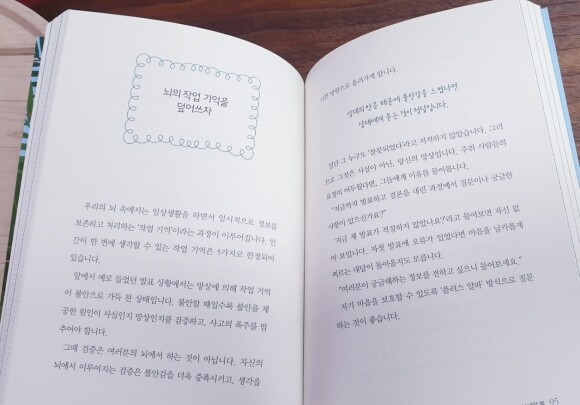 뇌의 작업 기억을
덮어쓰자
우리의 뇌 속에서는 일상생활을 하면서 일시적으로 정보를
보존하고 처리하는 '작업 기억'이라는 과정이 이루어집니다. 인
간이 한 번에 생각할 수 있는 작업 기억은 5가지로 한정되어
있습니다.
앞에서 예로 들었던 발표 상황에서는 망상에 의해 작업 기억
이 불안으로 가득 찬 상태입니다. 불안할 때일수록 불안을 제
공한 원인이 사실인지 망상인지를 검증하고, 사고의 폭주를 멈
추어야 합니다.
그때 검증은 여러분의 뇌에서 하는 것이 아닙니다. 자신의
뇌에서 이루어지는 검증은 불안감을 더욱 증폭시키고, 생각을
방향으로 흘러가게 합니다.
상대의 말 때문에 불안감을 느꼈다면
상대에게 묻는 것이 정답입니다.
일단 그 누구도 '잘못되었다'라고 지적하지 않았습니다. 그러
므로 그것은 사실이 아닌, 당신의 망상입니다. 주위 사람들의
표정이 어두웠다면, 그들에게 이유를 물어봅니다.
"지금까지 발표하고 결론을 내린 과정에서 질문이나 궁금한
사항이 있으신가요?"
'지금 제 발표가 적절하지 않았나요?'라고 물어보면 자신 없
어 보입니다. 자칫 발표에 오류가 있었다면 마음을 날카롭게
찌르는 대답이 돌아올지도 모릅니다.
"여러분이 궁금해하는 정보를 전하고 싶으니 물어보세요."
자기 마음을 보호할 수 있도록 '플러스 알파' 방식으로 질문
하는 것이 좋습니다.
95